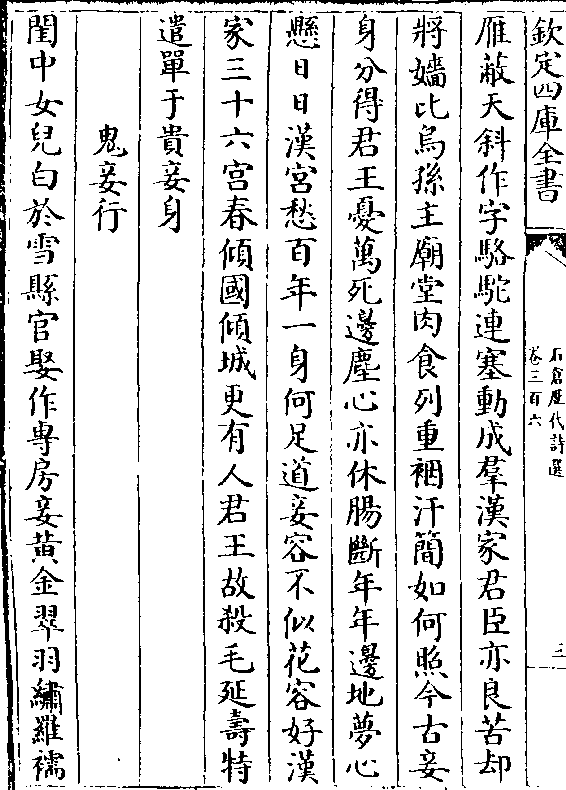 欽定四庫全書
石倉歷代詩選
卷三百六
三
雁蔽天斜作字駱駝連塞動成羣漢家君臣亦良苦却
將嬙比烏孫主廟堂肉食列重裀汗簡如何照今古妾
身分得君王憂萬死邊塵心亦休腸斷年年邊地夢心
懸日日漢宮愁百年一身何足道妾容不似花容好漢
家三十六宮春傾國傾城更有人君王故殺毛延壽特
遣單于貴妾身
鬼妾行
閨中女兒白於雪縣官娶作專房妾黃金翠羽繡羅襦